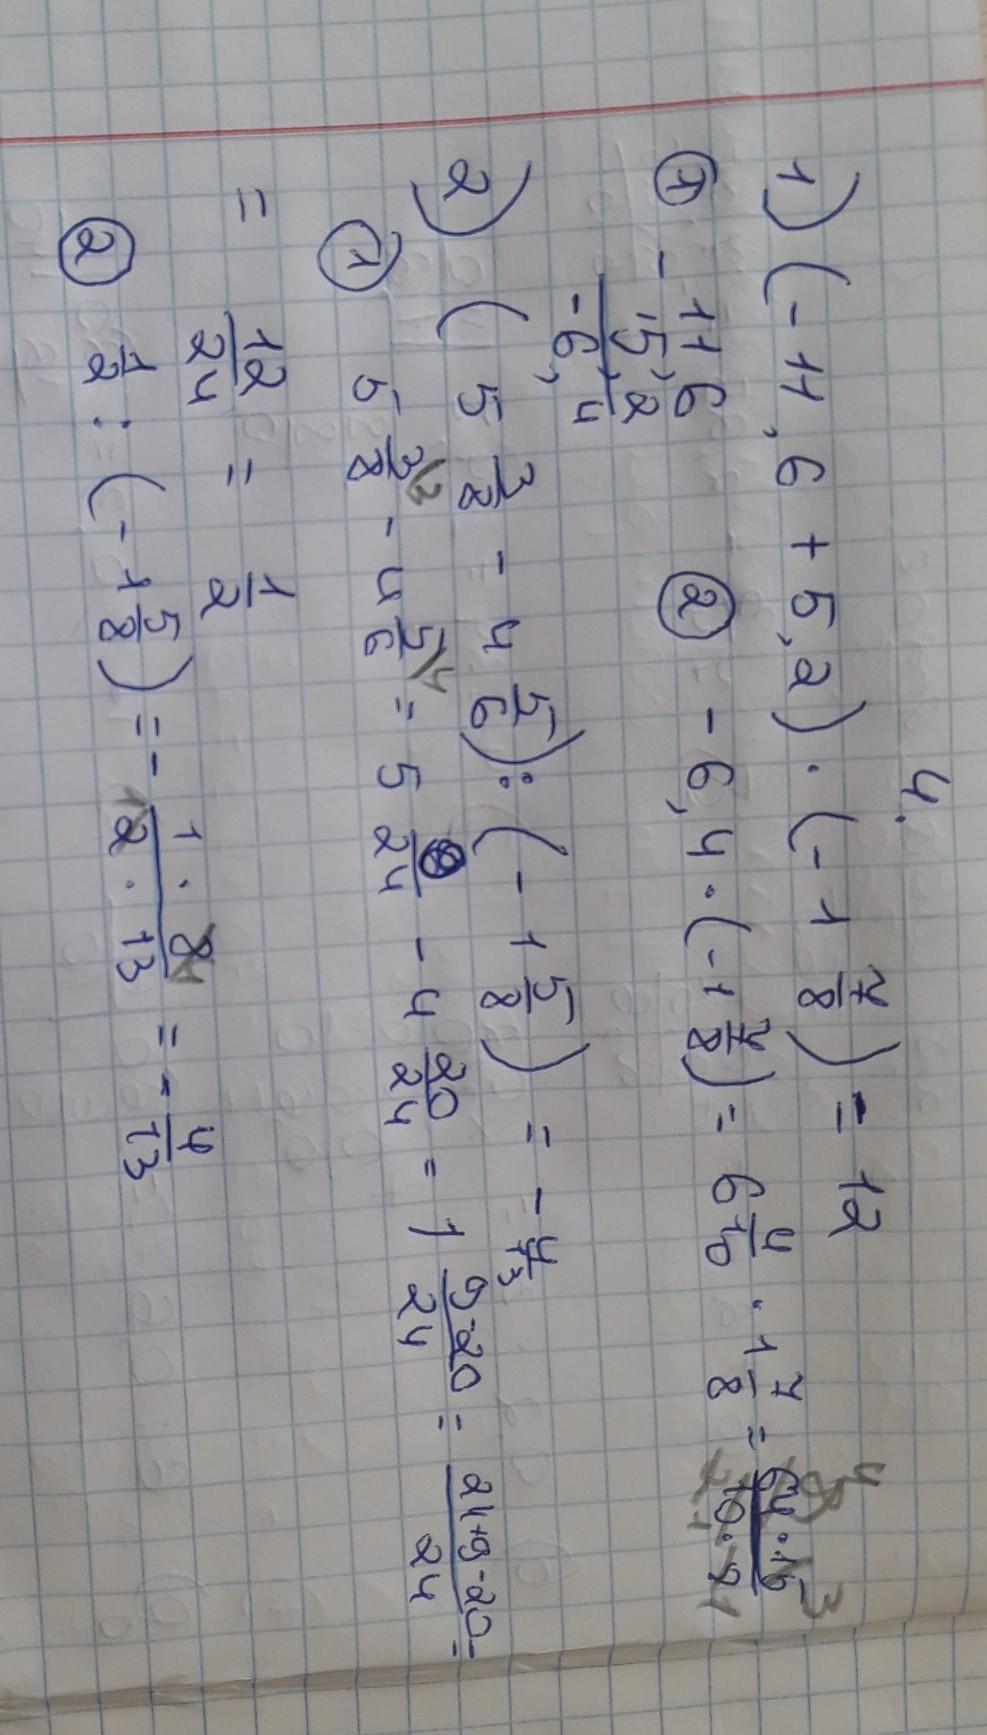 4.
1) (-11,6 + 5,2) · (-1 7/8) = 12
① -11,6
5,2
-6,4
② -6,4 · (-1 7/8) = 6 4/10 · 1 7/8 = 64 · 15 / 10 ·
2) (5 3/8 - 4 5/6) : (-1 5/8) = -4/13
① 5 3/8 \3 - 4 5/6 \4 = 5 9/24 - 4 20/24 = 1 9-20/24 = 24+9-20/24 =
= 12/24 = 1/2
② 1/2 : (-1 5/8) = - 1 · 8 / 2 · 13 = - 4/13